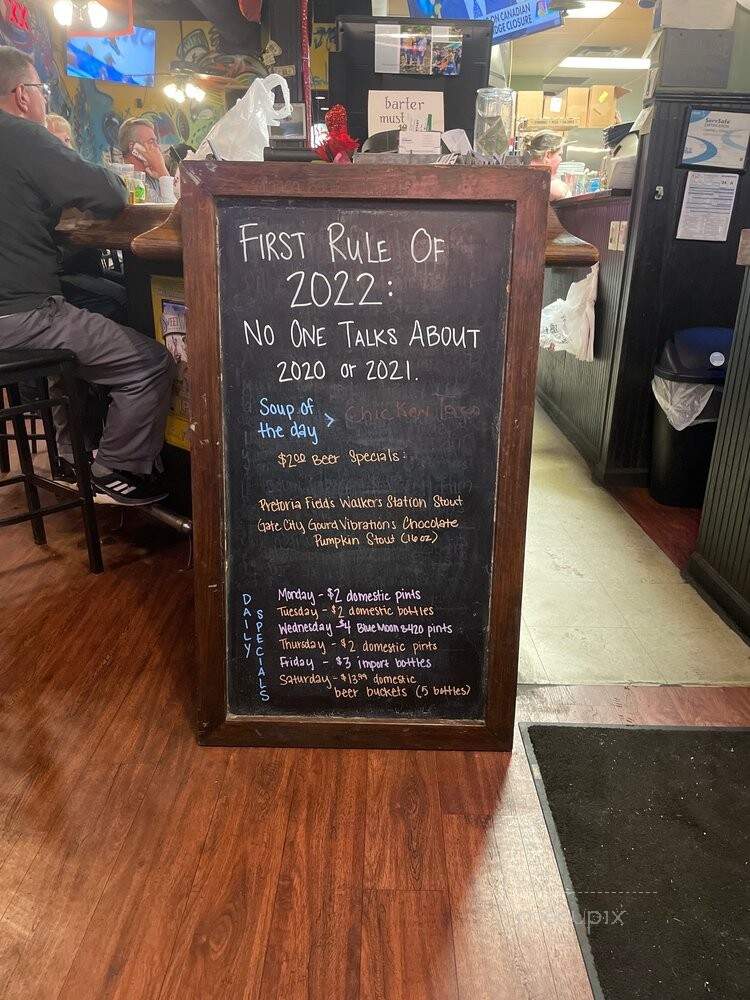 ON CANADIAN
DGE CLOSURE
barter
must
ServSafe
FIRST RULE OF
2022:
NO ONE TALKS ABOUT
2020 or 2021.
Soup of
the day > Chicken Taco
$2.00 Beer Specials:
Pretoria Fields Walkers Station Stout
Gate City Gourd Vibrations Chocolate
Pumpkin Stout (16oz)
DAILY
SPECIALS
Monday - $2 domestic pints
Tuesday - $2 domestic bottles
Wednesday - $4 Blue Moon & 420 pints
Thursday - $2 domestic pints
Friday - $3 import bottles
Saturday - $13.99 domestic
beer buckets (5 bottles)